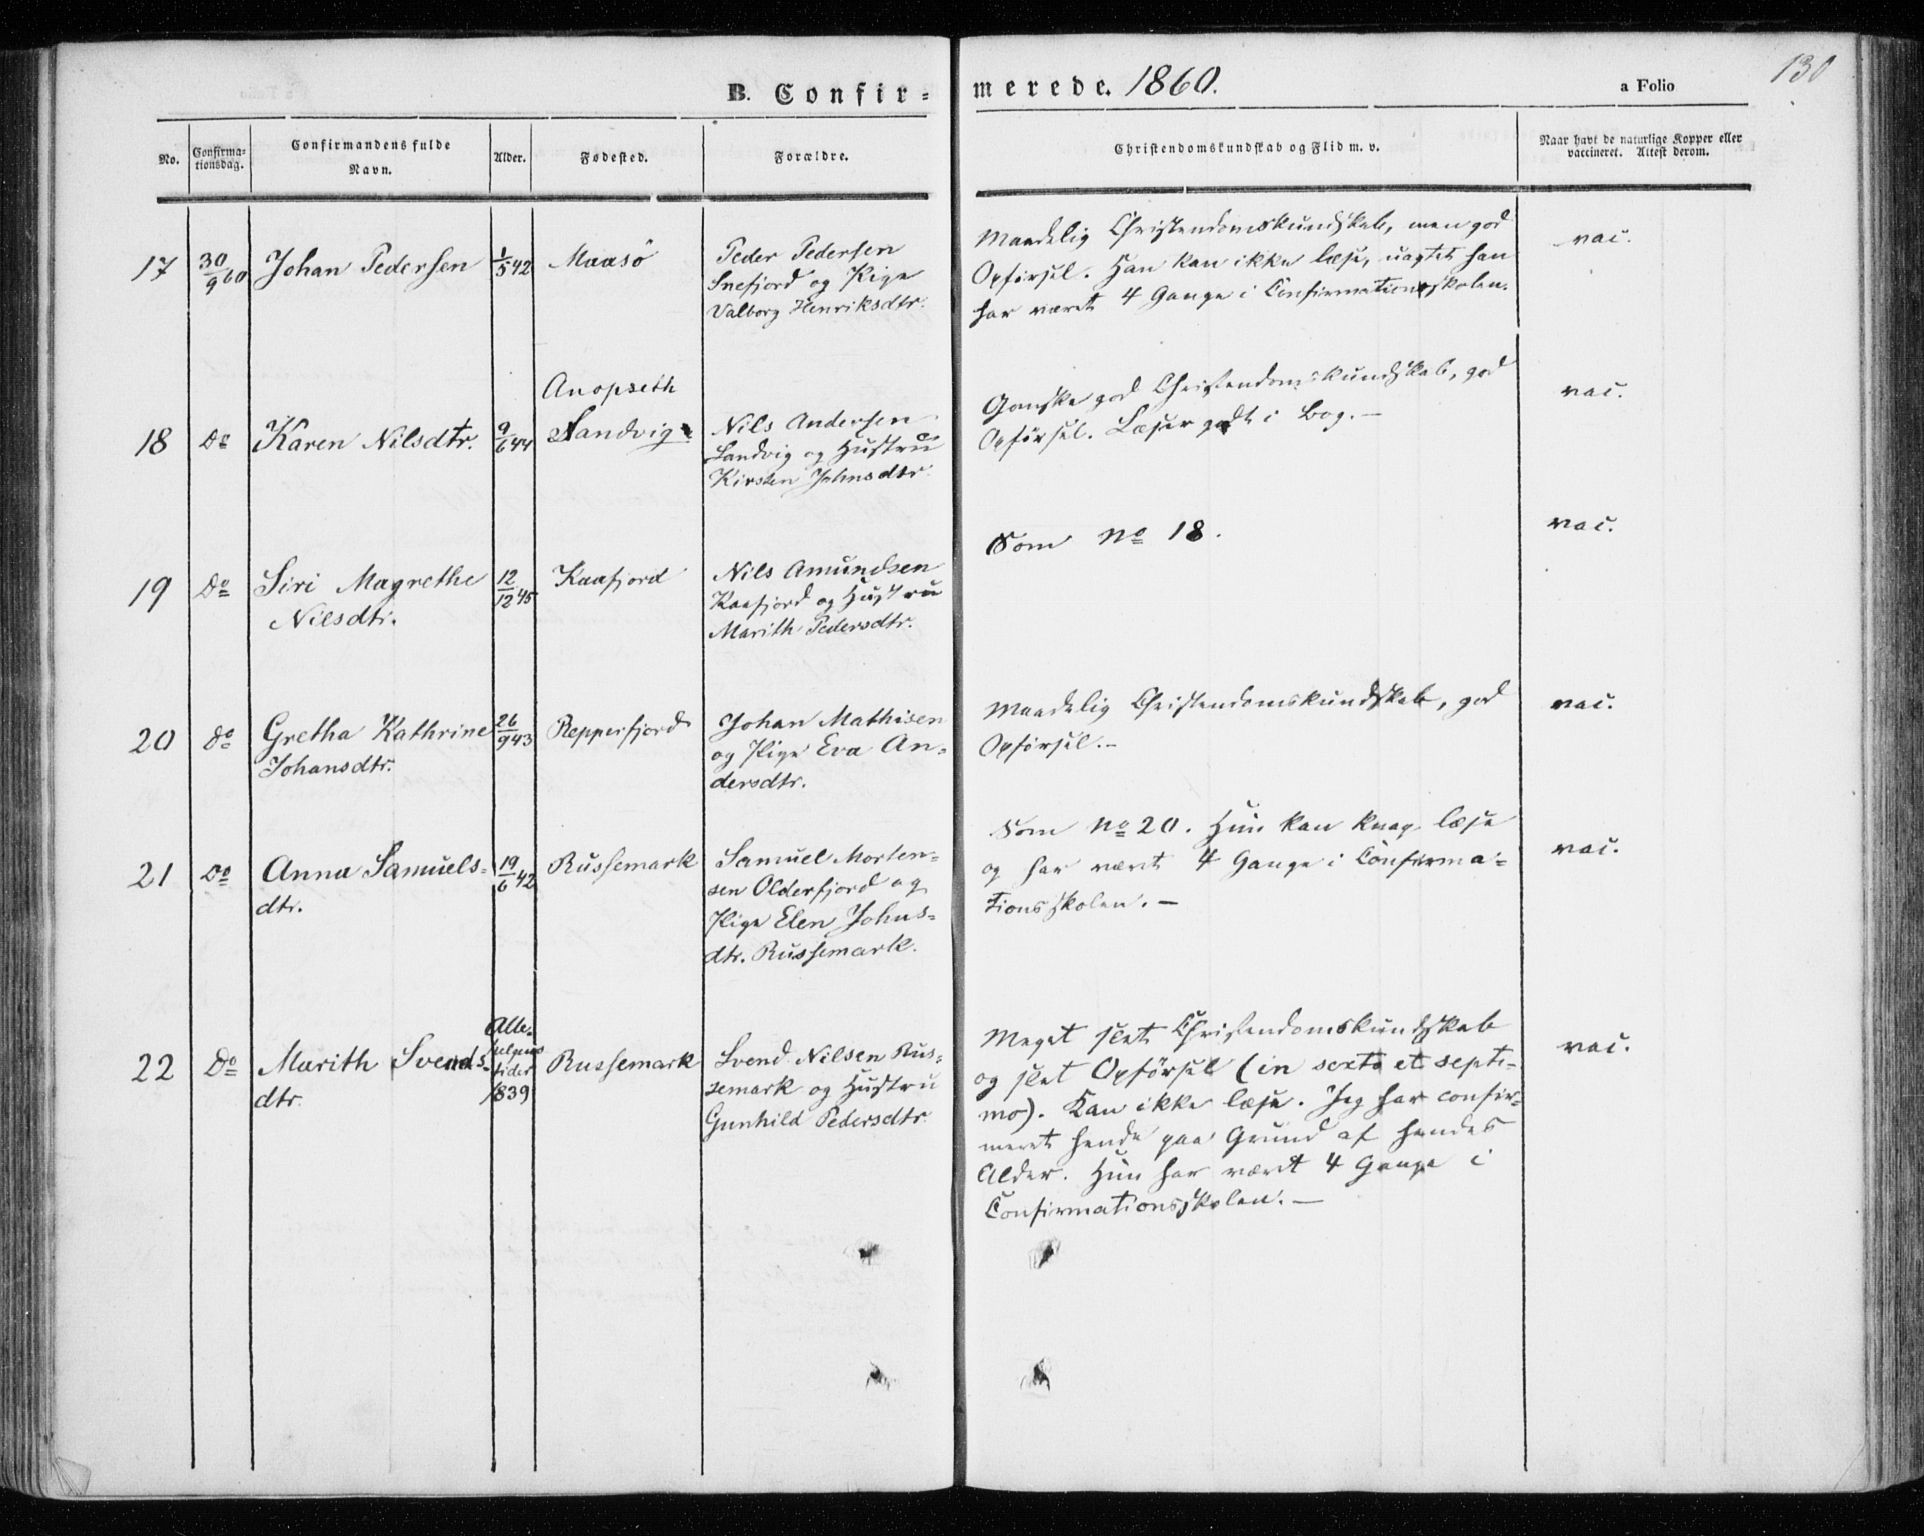 130
B. Confirmerede. 1860.
a Folio
No.
Confirmationsdag.
Confirmandens fulde Navn.
Alder.
Fødested.
Forældre.
Christendomskundskab og Flid m. v.
Naar havt de naturlige Kopper eller vaccineret. Attest derom.
17
30/9 60
Johan Pedersen
1/5 42
Maasö
Peder Pedersen
Snefjord og Pige
Valborg Henriksdtr.
Maadelig Christendomskundskab, men god
Opförsel. Han kan ikke læse, uagtet han
har været 4 Gange i Confirmationsskolen.
vac.
18
Do
Karen Nilsdtr.
9/6 44
Anopseth
Sandvig
Nils Andersen
Sandvig og Hustru
Kirsten Johnsdtr.
Ganske god Christendomskundskab, god
Opförsel. Læser godt i Bog.—
vac.
19
Do
Siri Magrethe
Nilsdtr.
12/12 45
Kaafjord
Nils Amundsen
Kaafjord og Hustru
Marith Pedersdtr.
Som No 18.
vac.
20
Do
Gretha Kathrine
Johansdtr.
26/9 43
Repperfjord
Johan Mathisen
og Pige Eva An-
dersdtr.
Maadelig Christendomskundskab, god
Opförsel.—
vac.
21
Do
Anna Samuels-
dtr.
19/6 42
Russemark
Samuel Morten-
sen Olderfjord og
Pige Elen Johns-
dtr. Russemark.
Som No 20. Hun kan knap læse
og har været 4 Gange i Confirma-
tionsskolen.—
vac.
22
Do
Marith Svends-
dtr.
Alle-
helgens
tider
1839
Russemark
Svend Nilsen Rus-
semark og Hustru
Gunhild Pedersdtr.
Meget slet Christendomskundskab
og slet Opførsel (in sexto et septi-
mo). Kan ikke læse. Jeg har confir-
meret hende paa Grund af hendes
Alder. Hun har været 4 Gange i
Confirmationsskolen.—
vac.